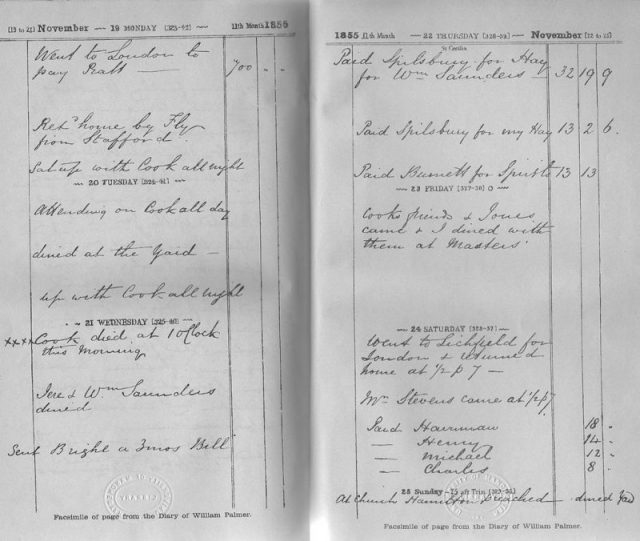 [13 to 23] November — 19 MONDAY [323-42] — 11th Month 1855
Went to London to
pay Pratt — 700 " "
Retd home by Fly
from Stafford.
Sat up with Cook all night
— 20 TUESDAY [324-41] —
Attending on Cook all day
dined at the Yard —
up with Cook all night
— 21 WEDNESDAY [325-40] —
xxxx Cook died at 1 oClock
this Morning
Jere & Wm Saunders
dined
Sent Bright a 3mos Bill
Facsimile of page from the Diary of William Palmer.
1855 11th Month — 22 THURSDAY [326-39] — November [12 to 23]
St Cecilia
Paid Spilsbury for Hay
for Wm Saunders — 32 19 9
Paid Spilsbury for my Hay 13 2 6.
Paid Burnett for Spirits 13 13
— 23 FRIDAY [327-38] O —
Cooks friends & Jones
came & I dined with
them at Masters'
— 24 SATURDAY [328-37] —
Went to Lichfield for
London & returned
home at 1/2 p 7 —
Mr. Stevens came at 1/2 p 7
Paid Hawman 18 "
— Henry 14 "
— Michael 12 "
— Charles 8 "
25 Sunday — 25 aft Trin
At Church Hamilton Preached - dined Yard
Facsimile of page from the Diary of William Palmer.